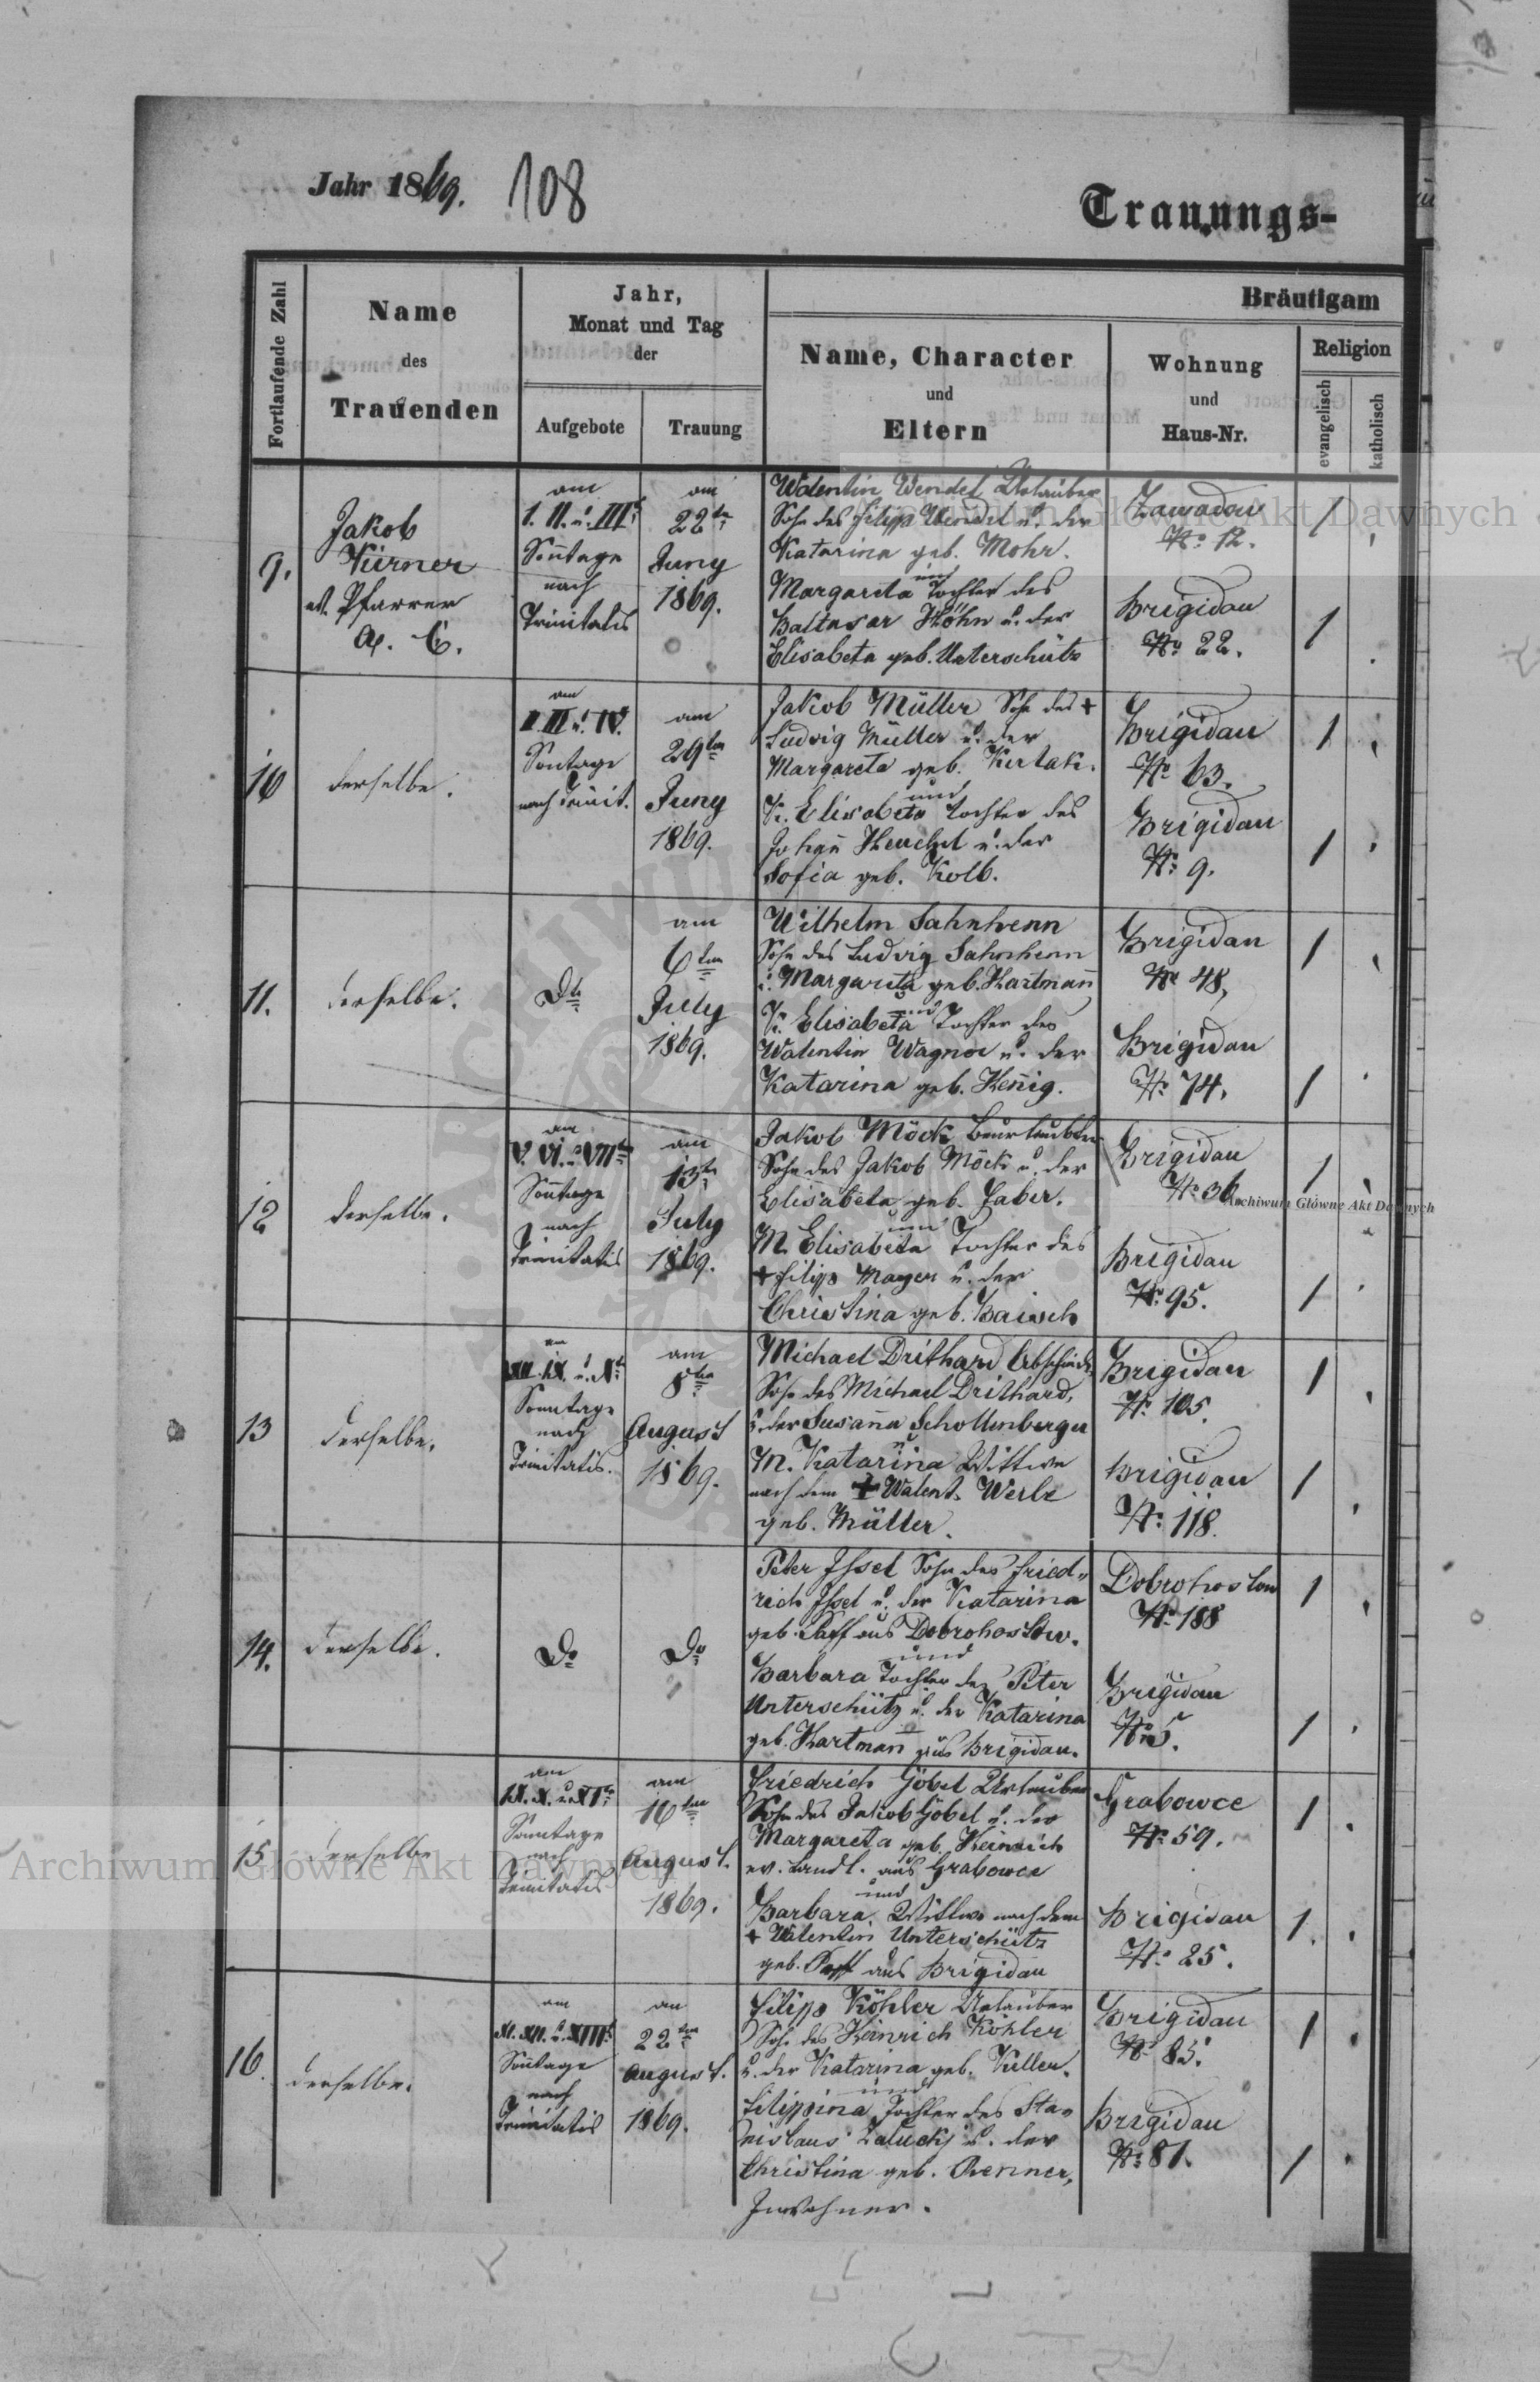 Jahr 1869. 108
Trauungs-
Fortlaufende Zahl
Name
des
Trauenden
Jahr,
Monat und Tag
der
Aufgebote
Trauung
Bräutigam
Name, Character
und
Eltern
Wohnung
und
Haus-Nr.
Religion
evangelisch
katholisch
9.
Jakob
Kürner
ev. Pfarrer
A. C.
am
I. II. u. III
Soñtage
nach
Trinitatis
am
22ten
Juny
1869.
Walentin Wendel Urlauber
Sohn des Filipp Wendel u. der
Katarina geb. Mohr.
und
Margareta Tochter des
Baltasar Höhn u. der
Elisabeta geb. Unterschütz
Zawadow
No. 12.
Brigidau
No. 22.
1
1
10
derselbe.
am
II III u. IV.
Sontage
nach Trinit.
am
29ten
Juny
1869.
Jakob Müller Sohn des +
Ludwig Müller u. der
Margareta geb.
und
K. Elisabeta Tochter des
Johañ Heuchel u. der
Sofia geb. Kolb.
Brigidau
No. 63.
Brigidau
No. 9.
1
1
11.
derselbe.
Dto
am
6ten
July
1869.
Wilhelm Sahnhenn
Sohn des Ludwig Sahnhenn
u. Margareta geb. Hartmañ
und
K. Elisabeta Tochter des
Walentin Wagner u. der
Katarina geb. Heñig.
Brigidau
No 48,
Brigidau
No. 74.
1
1
12
derselbe.
am
V. VI. u. VII
Soñtage
nach
Trinitatis
am
13ten
July
1869.
Jakob Möck Beurlaubter
Sohn des Jakob Möck u. der
Elisabeta geb. Faber.
und
M. Elisabeta Tochter des
+ Filipp Mayer u. der
Christina geb. Baisch
Brigidau
No. 36
Brigidau
No. 95.
1
1
13
derselbe.
am
VIII. IX. u. X
Sonntage
nach
Trinitatis.
am
8ten
August
1869.
Michael Drithard
Sohn des Michael Drithard,
u. der Susaña Schollenberger
u.
M. Katarina Wittwe
nach dem + Walent. Werle
geb. Müller.
Brigidau
No. 105.
Brigidau
No. 118.
1
1
14.
derselbe.
Do
Do
Peter Issel Sohn des Fried-
rich Issel u. der Katarina
geb. Paff aus Dobrohostow.
und
Barbara Tochter des Peter
Unterschütz u. der Katarina
geb. Hartmañ aus Brigidau.
Dobrohostow
No. 188
Brigidau
No. 5.
1
1
15
derselbe
am
IX. X. u. XI
Sonntage
nach
Trinitatis
am
16ten
August.
1869.
Friedrich Göbel Urlauber
Sohn des Jakob Göbel u. der
Margareta geb. Heinrich
ev. Landl. aus Grabowce
und
Barbara, Wittwe nach dem
+ Walentin Unterschütz
geb. Paff aus Brigidau
Grabowce
No. 59.
Brigidau
No. 25.
1
1.
16.
derselbe.
am
XI. XII. u. XIII
Soñtage
nach
Trinitatis
am
22ten
August.
1869.
Filipp Köhler Urlauber
Sohn des Heinrich Köhler
u. der Katarina geb. Keller.
und
Filippina Tochter des Sta-
nislaus Zalucky u. der
Christina geb. Renner,
Inwohner.
Brigidau
No 85.
Brigidau
No. 81.
1
1
Archiwum Główne Akt Dawnych
Archiwum Główne Akt Dawnych
Archiwum Główne Akt Dawnych